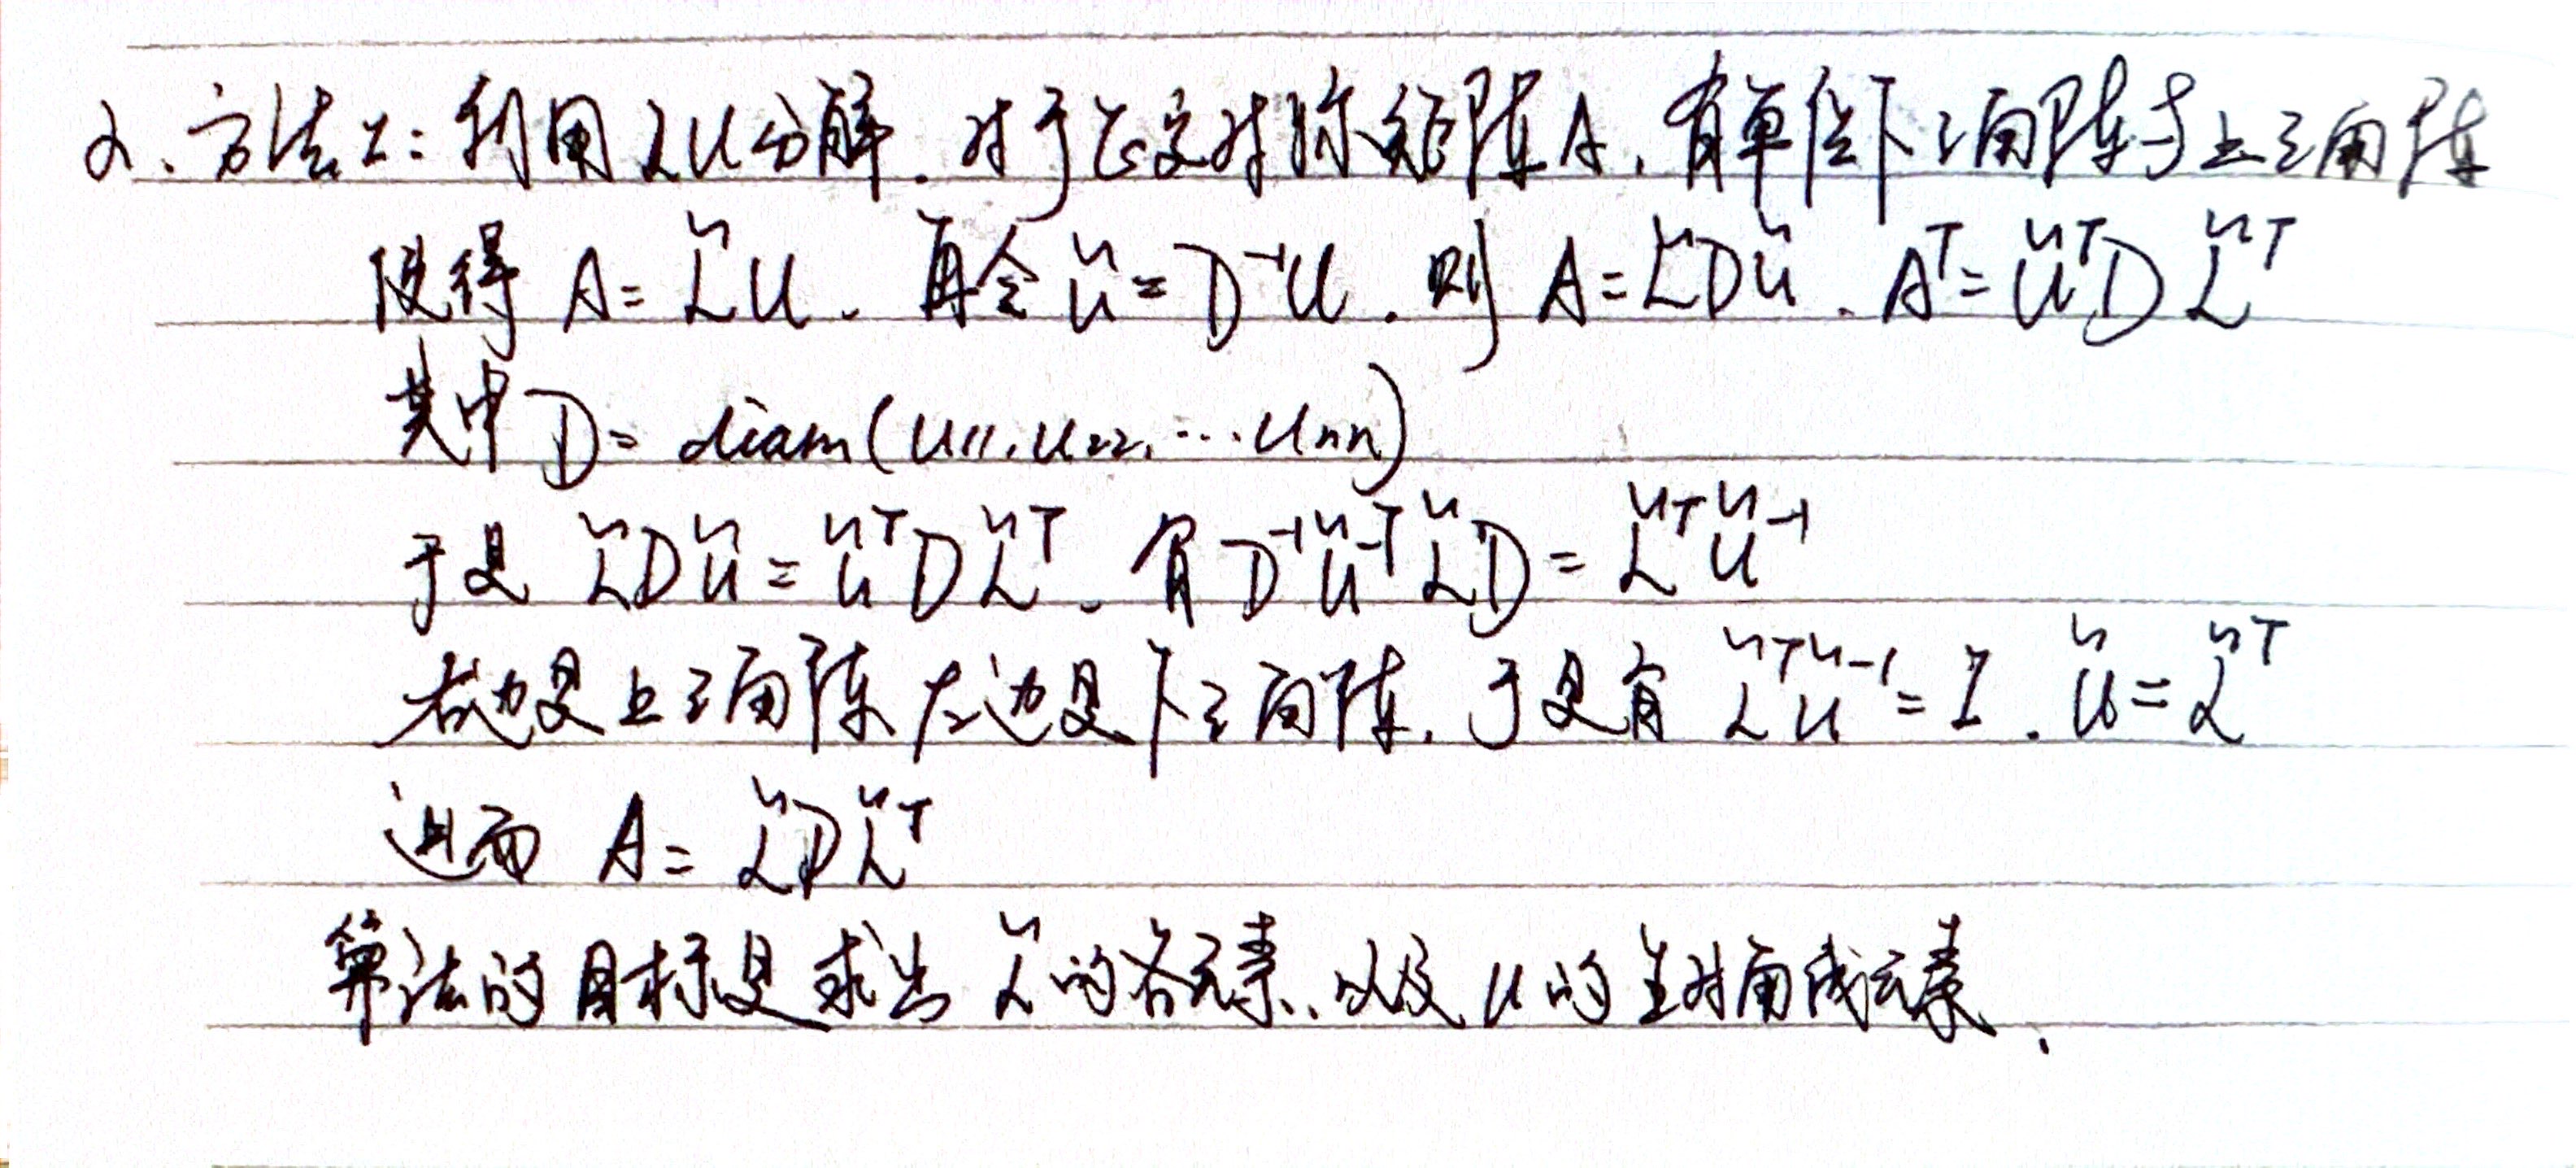 2. 方法1: 利用LU分解. 对于正定对称矩阵A, 有单位下三角阵与上三角阵
使得 A = L̃U. 再令 Ũ = D⁻¹U. 则 A = L̃DŨ. Aᵀ = ŨᵀDL̃ᵀ
其中 D = diam(u₁₁, u₂₂, … uₙₙ)
于是 L̃DŨ = ŨᵀDL̃ᵀ. 有 D⁻¹Ũ⁻ᵀL̃D = L̃ᵀŨ⁻¹
右边是上三角阵 左边是下三角阵. 于是有 L̃ᵀŨ⁻¹ = I. Ũ = L̃ᵀ
进而 A = L̃DL̃ᵀ
算法的目标是求出 L̃ 的各元素, 以及 U 的主对角线元素.